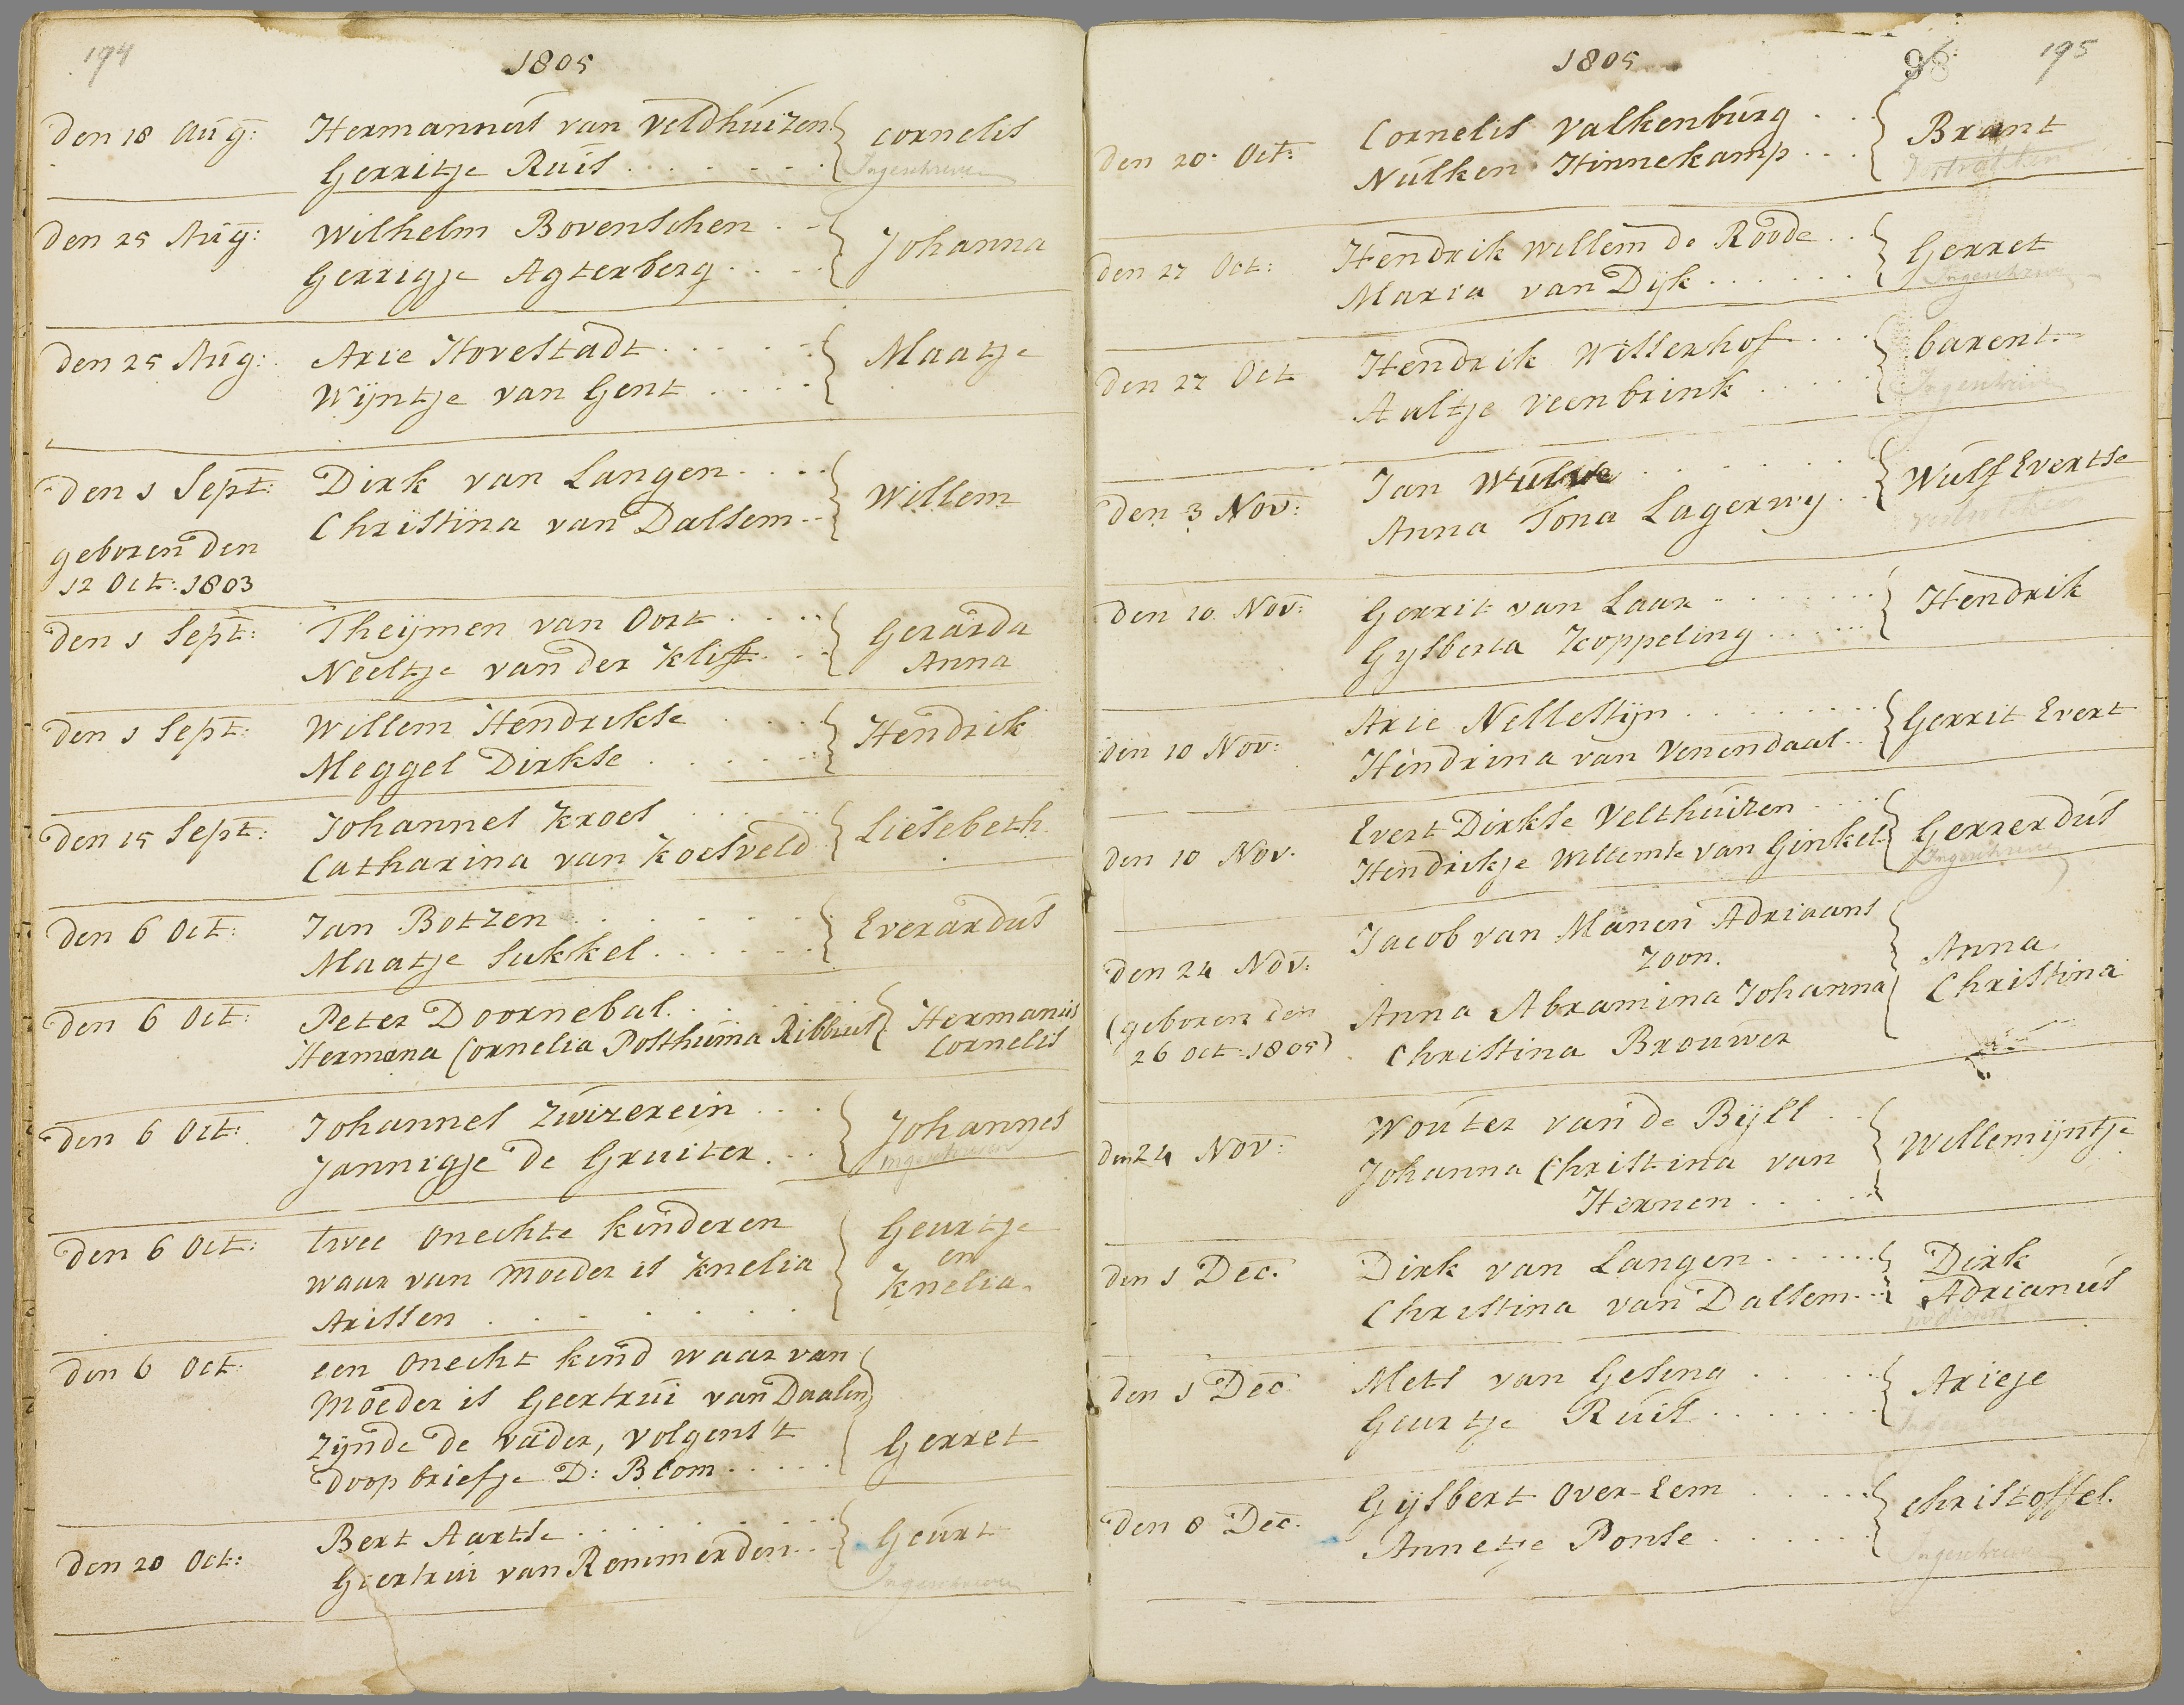 194
1805
den 18 Aug: Hermannus van Veldhuizen. cornelis
Gerritje Ruis . . . . . . . Ingeschreven
den 25 Aug: Wilhelm Bovenschen . . Johanna
Gerrigje Agterberg . . . .
den 25 Aug: Arie Hovestadt . . . . . Maatje
Wijntje van Gent . . . .
den 1 Sept: Dirk van Langen . . . . Willem
Christina van Dalsem . .
geboren den
12 Oct: 1803
den 1 Sept: Theijmen van Oort . . . . Gerarda
Neeltje van der Klift . . . Anna
den 1 Sept: Willem Hendrikse . . . . Hendrik
Meggel Dirkse . . . . . .
den 15 Sept: Johannes Kroes . . . . . Liesebeth
Catharina van Koesveld
den 6 Oct: Jan Botzen . . . . . . . Everardus
Maatje Sukkel . . . . . .
den 6 Oct: Peter Doornebal. . . . . Hermanus
Hermana Cornelia Posthuma Ribbius Cornelis
den 6 Oct: Johannes Zwizerein . . . Johannes
Jannigje de Gruiter . . . Ingeschreven
den 6 Oct: twee onechte kinderen Geurtje
waar van Moeder is Knelia en
Arissen . . . . . . . Knelia.
den 6 Oct: een onecht kind waar van
Moeder is Geertrui van Daalen
zijnde de vader, volgens 't Gerret
doop briefje D: Blom . . . . .
den 20 Oct: Bert Aartse . . . . . . . Geurt
Geertrui van Remmerden . . . Ingeschreven
1805 98 195
den 20 Oct: Cornelis Valkenburg . . . Brant
Nulken Hinnekamp . . .
den 27 Oct: Hendrik Willem de Roode . . Gerret
Maria van Dijk . . . . . . Ingeschreven
den 27 Oct Hendrik Willerhof . . . barent.
Aaltje Veenbrink . . . . . Ingeschreven
den 3 Nov: Jan . . . . . . . Wulf Evertse
Anna Tona Lagerwy . .
den 10 Nov: Gerrit van Laar . . . . . . . Hendrik
Gysberta Koppeling . . . . . .
den 10 Nov: Arie Nellestijn . . . . . . . . Gerrit Evert
Hendrina van Venendaal . .
den 10 Nov. Evert Dirkse Velthuizen . . . . Gerrerdus
Hendrikje Willemse van Ginkel. Ingeschreven
den 24 Nov: Jacob van Manen Adriaans
zoon. Anna
(geboren den Anna Abramina Johanna Christina
26 Oct: 1805) Christina Brouwer
den 24 Nov: Wouter van de Bijll . . Willemijntje
Johanna Christina van
Hernen . . . . .
den 1 Dec. Dirk van Langen . . . . . . Dirk
Christina van Dalsem . . . Adrianus
den 1 Dec. Mets van Gesing . . . . . Arieje
Geurtje Ruis . . . . . . .
den 8 Dec. Gijsbert Over-Eem . . . . . christoffel.
Annetje Ponse . . . . . . Ingeschreven